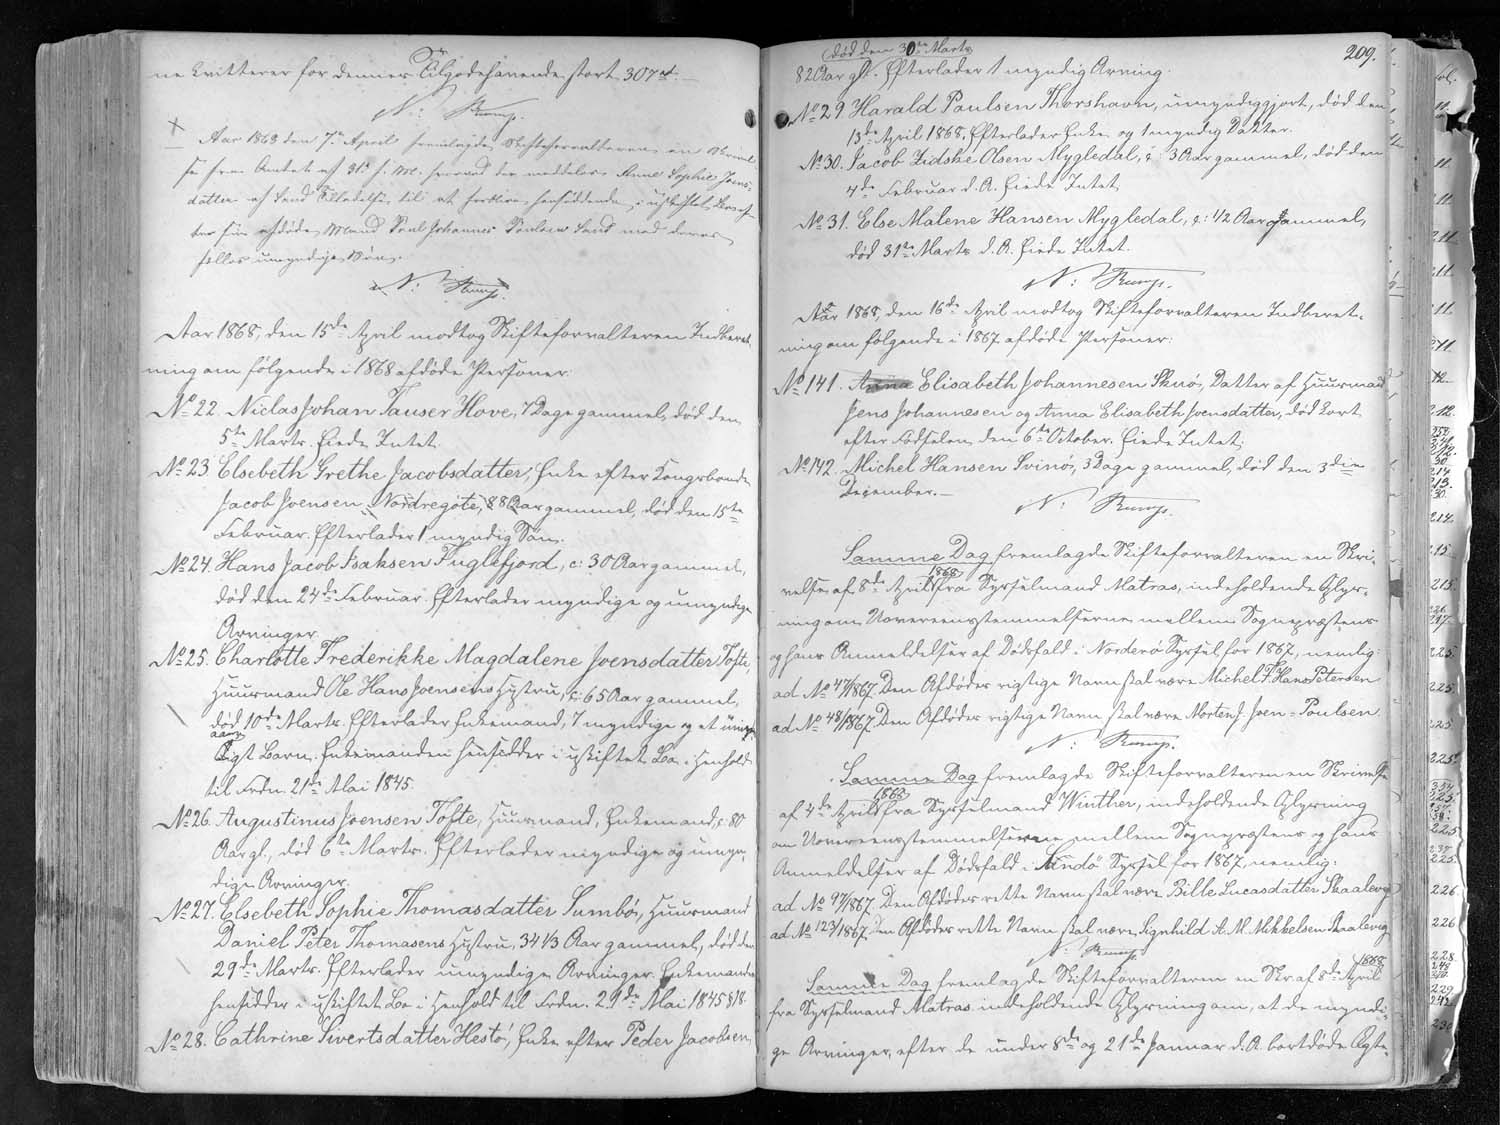 ne kvitterer for dennes Tilgodehavende stort 307 rd.
N: Rump.
Aar 1868 den 7de April fremlagde Skifteforvalteren en Skrivel
se fra Amtet af 31te f. M. hvorved der meddeles Anne Sophie Joens
datter af Sand Tilladelse til at forblive hensiddende i uskiftet Bo ef
ter sin afdøde Mand Poul Johannes Poulsen Sand med deres
fælles umyndige Børn.
N: Rump.
Aar 1868, den 15de April modtog Skifteforvalteren Indberet
ning om følgende i 1868 afdøde Personer:
No 22. Niclas Johan Tauser Hove, 7 Dage gammel, død den
5te Marts. Eiede Intet.
No 23 Elsebeth Grethe Jacobsdatter, Enke efter Kongsbonde
Jacob Joensen, Nordregøte, 88 Aar gammel, død den 15te
Februar. Efterlader 1 myndig Søn.
No 24. Hans Jacob Isaksen Fuglefjord, c: 30 Aar gammel,
død den 24de Februar. Efterlader myndige og umyndige
Arvinger.
No 25. Charlotte Frederikke Magdalene Joensdatter Tofte,
Huusmand Ole Hans Joensens Hustru, c: 65 Aar gammel,
død 10de Marts. Efterlader Enkemand, 7 myndige og et umyn
digt Barn. Enkemanden hensidder i uskiftet Bo i Henhold
til Frdn. 21de Mai 1845.
No 26. Augustinus Joensen Tofte, Huusmand, Enkemand, c: 80
Aar gl., død 6te Marts. Efterlader myndige og umyn
dige Arvinger.
No 27. Elsebeth Sophie Thomasdatter Sumbø, Huusmand
Daniel Peter Thomasens Hustru, 34 1/3 Aar gammel, død den
29de Marts. Efterlader umyndige Arvinger. Enkemanden
hensidder i uskiftet Bo i Henhold til Frdn. 21de Mai 1845 § 18.
No 28. Cathrine Sivertsdatter Hestø, Enke efter Peder Jacobsen,
død den 30te Marts
209.
82 Aar gl. Efterlader 1 myndig Arving.
No 29 Harald Paulsen Thorshavn, umyndiggjort, død den
13de April 1868, Efterlader Enke og 1 myndig Datter.
No 30. Jacob Zidske Olsen Mygledal, c: 3 Aar gammel, død den
4de Februar d. A. Eiede Intet
No 31. Else Malene Hansen Mygledal, c: 1/2 Aar gammel,
død 31te Marts d. A. Eiede Intet.
N: Rump.
Aar 1868, den 16de April modtog Skifteforvalteren Indberet-
ning om følgende i 1867 afdøde Personer:
No 141. Elisabeth Johannesen Skuø, Datter af Huusmand
Jens Johannesen og Anna Elisabeth Joensdatter, død kort
efter Fødselen den 6te October. Eiede Intet.
No 142. Michel Hansen Svinø, 3 Dage gammel, død den 3die
December.
N: Rump.
Samme Dag fremlagde Skifteforvalteren en Skri-
velse af 8de April 1868 fra Sysselmand Matras, indeholdende Oplys-
ning om Uoverensstemmelserne mellem Sognepræstens
og hans Anmeldelser af Dødsfald i Norderø Syssel for 1867, nemlig:
ad No 47/1867 Den Afdødes rigtige Navn skal være Michel F. Hans Petersen
ad No 48/1867 Den Afdødes rigtige Navn skal være Morten J. Joen-Poulsen.
N: Rump.
Samme Dag fremlagde Skifteforvalteren en Skrivelse
af 4de April 1868 fra Sysselmand Winther, indeholdende Oplysning
om Uoverensstemmelserne mellem Sognepræstens og hans
Anmeldelser af Dødsfald i Sandø Syssel for 1867, nemlig:
ad No 97/1867 Den Afdødes rette Navn skal være Bille Lucasdatter Skaalevig
ad No 123/1867 Den Afdødes rette Navn skal være Signhild A. M. Mikkelsen Skaalevig
N: Rump
Samme Dag fremlagde Skifteforvalteren en Skr. af 8de April 1868
fra Sysselmand Matras indeholdende Oplysning om, at de myndi-
ge Arvinger, efter de under 8de og 21de Januar d. A. bortdøde Ægte-